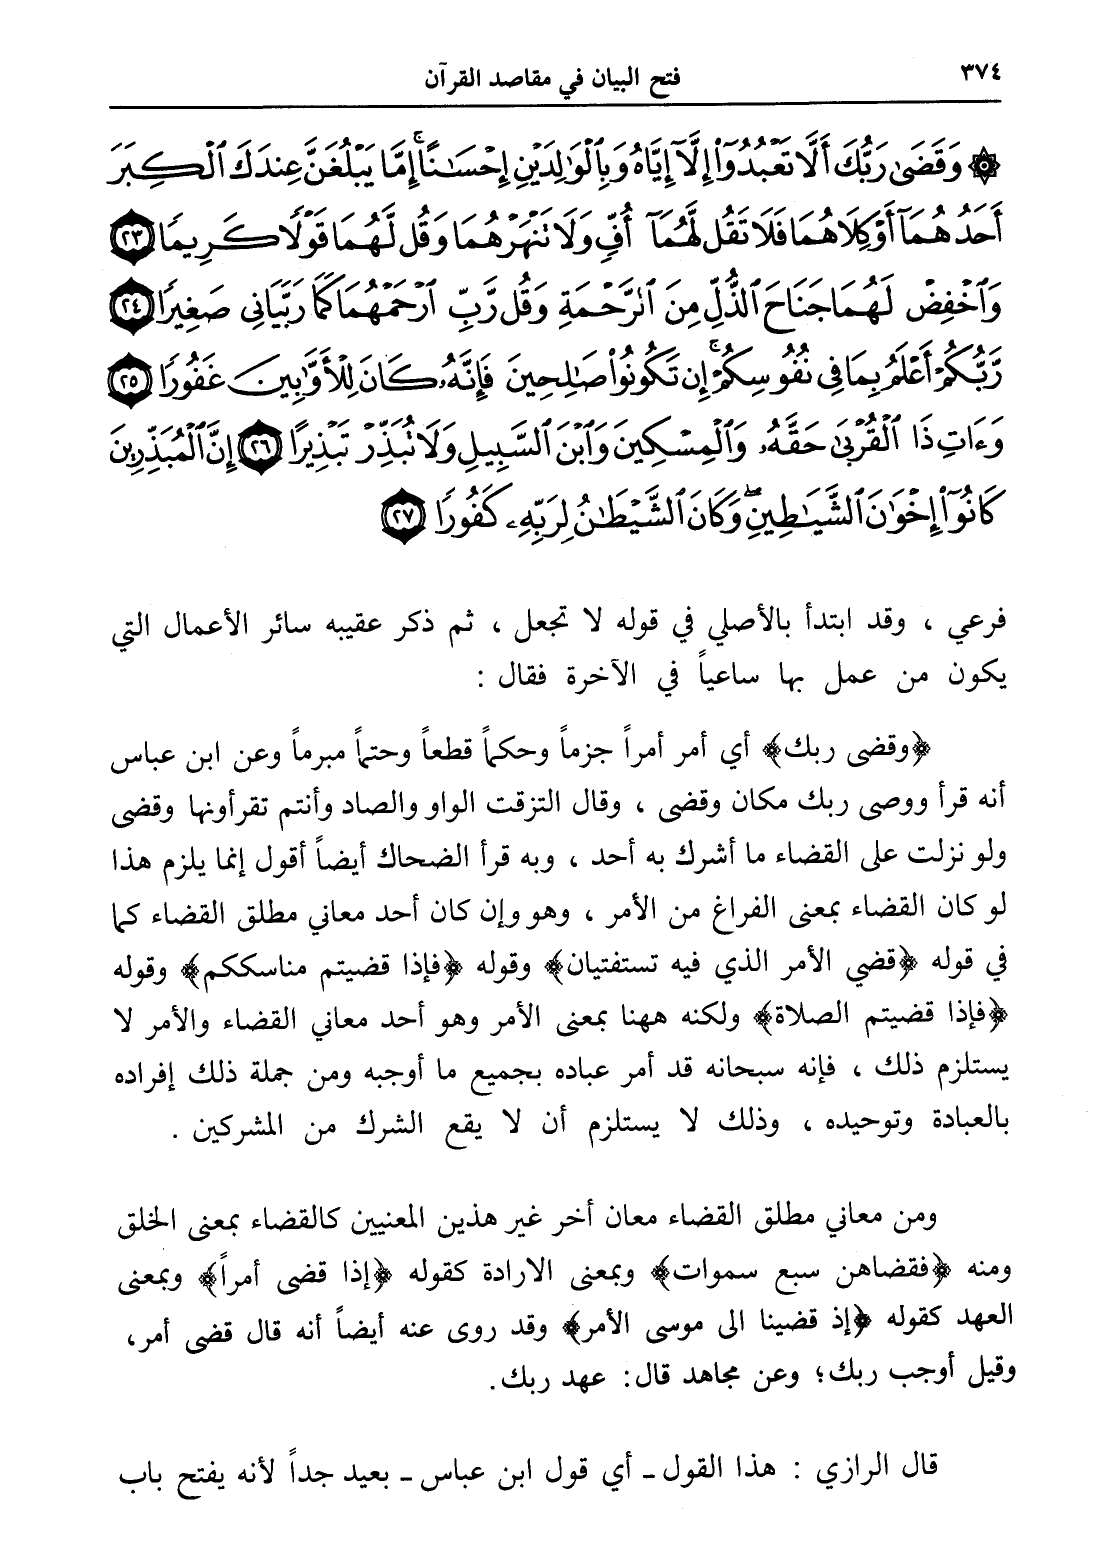 ٣٧٤ فتح البيان في مقاصد القرآن
۞ وَقَضَىٰ رَبُّكَ أَلَّا تَعْبُدُوٓا۟ إِلَّآ إِيَّاهُ وَبِٱلْوَٰلِدَيْنِ إِحْسَٰنًا ۚ إِمَّا يَبْلُغَنَّ عِندَكَ ٱلْكِبَرَ
أَحَدُهُمَآ أَوْ كِلَاهُمَا فَلَا تَقُل لَّهُمَآ أُفٍّ وَلَا تَنْهَرْهُمَا وَقُل لَّهُمَا قَوْلًا كَرِيمًا ٢٣
وَٱخْفِضْ لَهُمَا جَنَاحَ ٱلذُّلِّ مِنَ ٱلرَّحْمَةِ وَقُل رَّبِّ ٱرْحَمْهُمَا كَمَا رَبَّيَانِى صَغِيرًا ٢٤
رَّبُّكُمْ أَعْلَمُ بِمَا فِى نُفُوسِكُمْ ۚ إِن تَكُونُوا۟ صَٰلِحِينَ فَإِنَّهُۥ كَانَ لِلْأَوَّٰبِينَ غَفُورًا ٢٥
وَءَاتِ ذَا ٱلْقُرْبَىٰ حَقَّهُۥ وَٱلْمِسْكِينَ وَٱبْنَ ٱلسَّبِيلِ وَلَا تُبَذِّرْ تَبْذِيرًا ٢٦ إِنَّ ٱلْمُبَذِّرِينَ
كَانُوٓا۟ إِخْوَٰنَ ٱلشَّيَٰطِينِ ۖ وَكَانَ ٱلشَّيْطَٰنُ لِرَبِّهِۦ كَفُورًا ٢٧
فرعي ، وقد ابتدأ بالأصلي في قوله لا تجعل ، ثم ذكر عقيبه سائر الأعمال التي
يكون من عمل بها ساعياً في الآخرة فقال :
﴿وقضى ربك﴾ أي أمر أمراً جزماً وحكماً قطعاً وحتماً مبرماً وعن ابن عباس
أنه قرأ ووصى ربك مكان وقضى ، وقال التزقت الواو والصاد وأنتم تقرأونها وقضى
ولو نزلت على القضاء ما أشرك به أحد ، وبه قرأ الضحاك أيضاً أقول إنما يلزم هذا
لو كان القضاء بمعنى الفراغ من الأمر ، وهو وإن كان أحد معاني مطلق القضاء كما
في قوله ﴿قضي الأمر الذي فيه تستفتيان﴾ وقوله ﴿فإذا قضيتم مناسككم﴾ وقوله
﴿فإذا قضيتم الصلاة﴾ ولكنه ههنا بمعنى الأمر وهو أحد معاني القضاء والأمر لا
يستلزم ذلك ، فإنه سبحانه قد أمر عباده بجميع ما أوجبه ومن جملة ذلك إفراده
بالعبادة وتوحيده ، وذلك لا يستلزم أن لا يقع الشرك من المشركين .
ومن معاني مطلق القضاء معان أخر غير هذين المعنيين كالقضاء بمعنى الخلق
ومنه ﴿فقضاهن سبع سموات﴾ وبمعنى الارادة كقوله ﴿إذا قضى أمراً﴾ وبمعنى
العهد كقوله ﴿إذ قضينا الى موسى الأمر﴾ وقد روى عنه أيضاً أنه قال قضى أمر،
وقيل أوجب ربك؛ وعن مجاهد قال: عهد ربك.
قال الرازي : هذا القول ـ أي قول ابن عباس ـ بعيد جداً لأنه يفتح باب